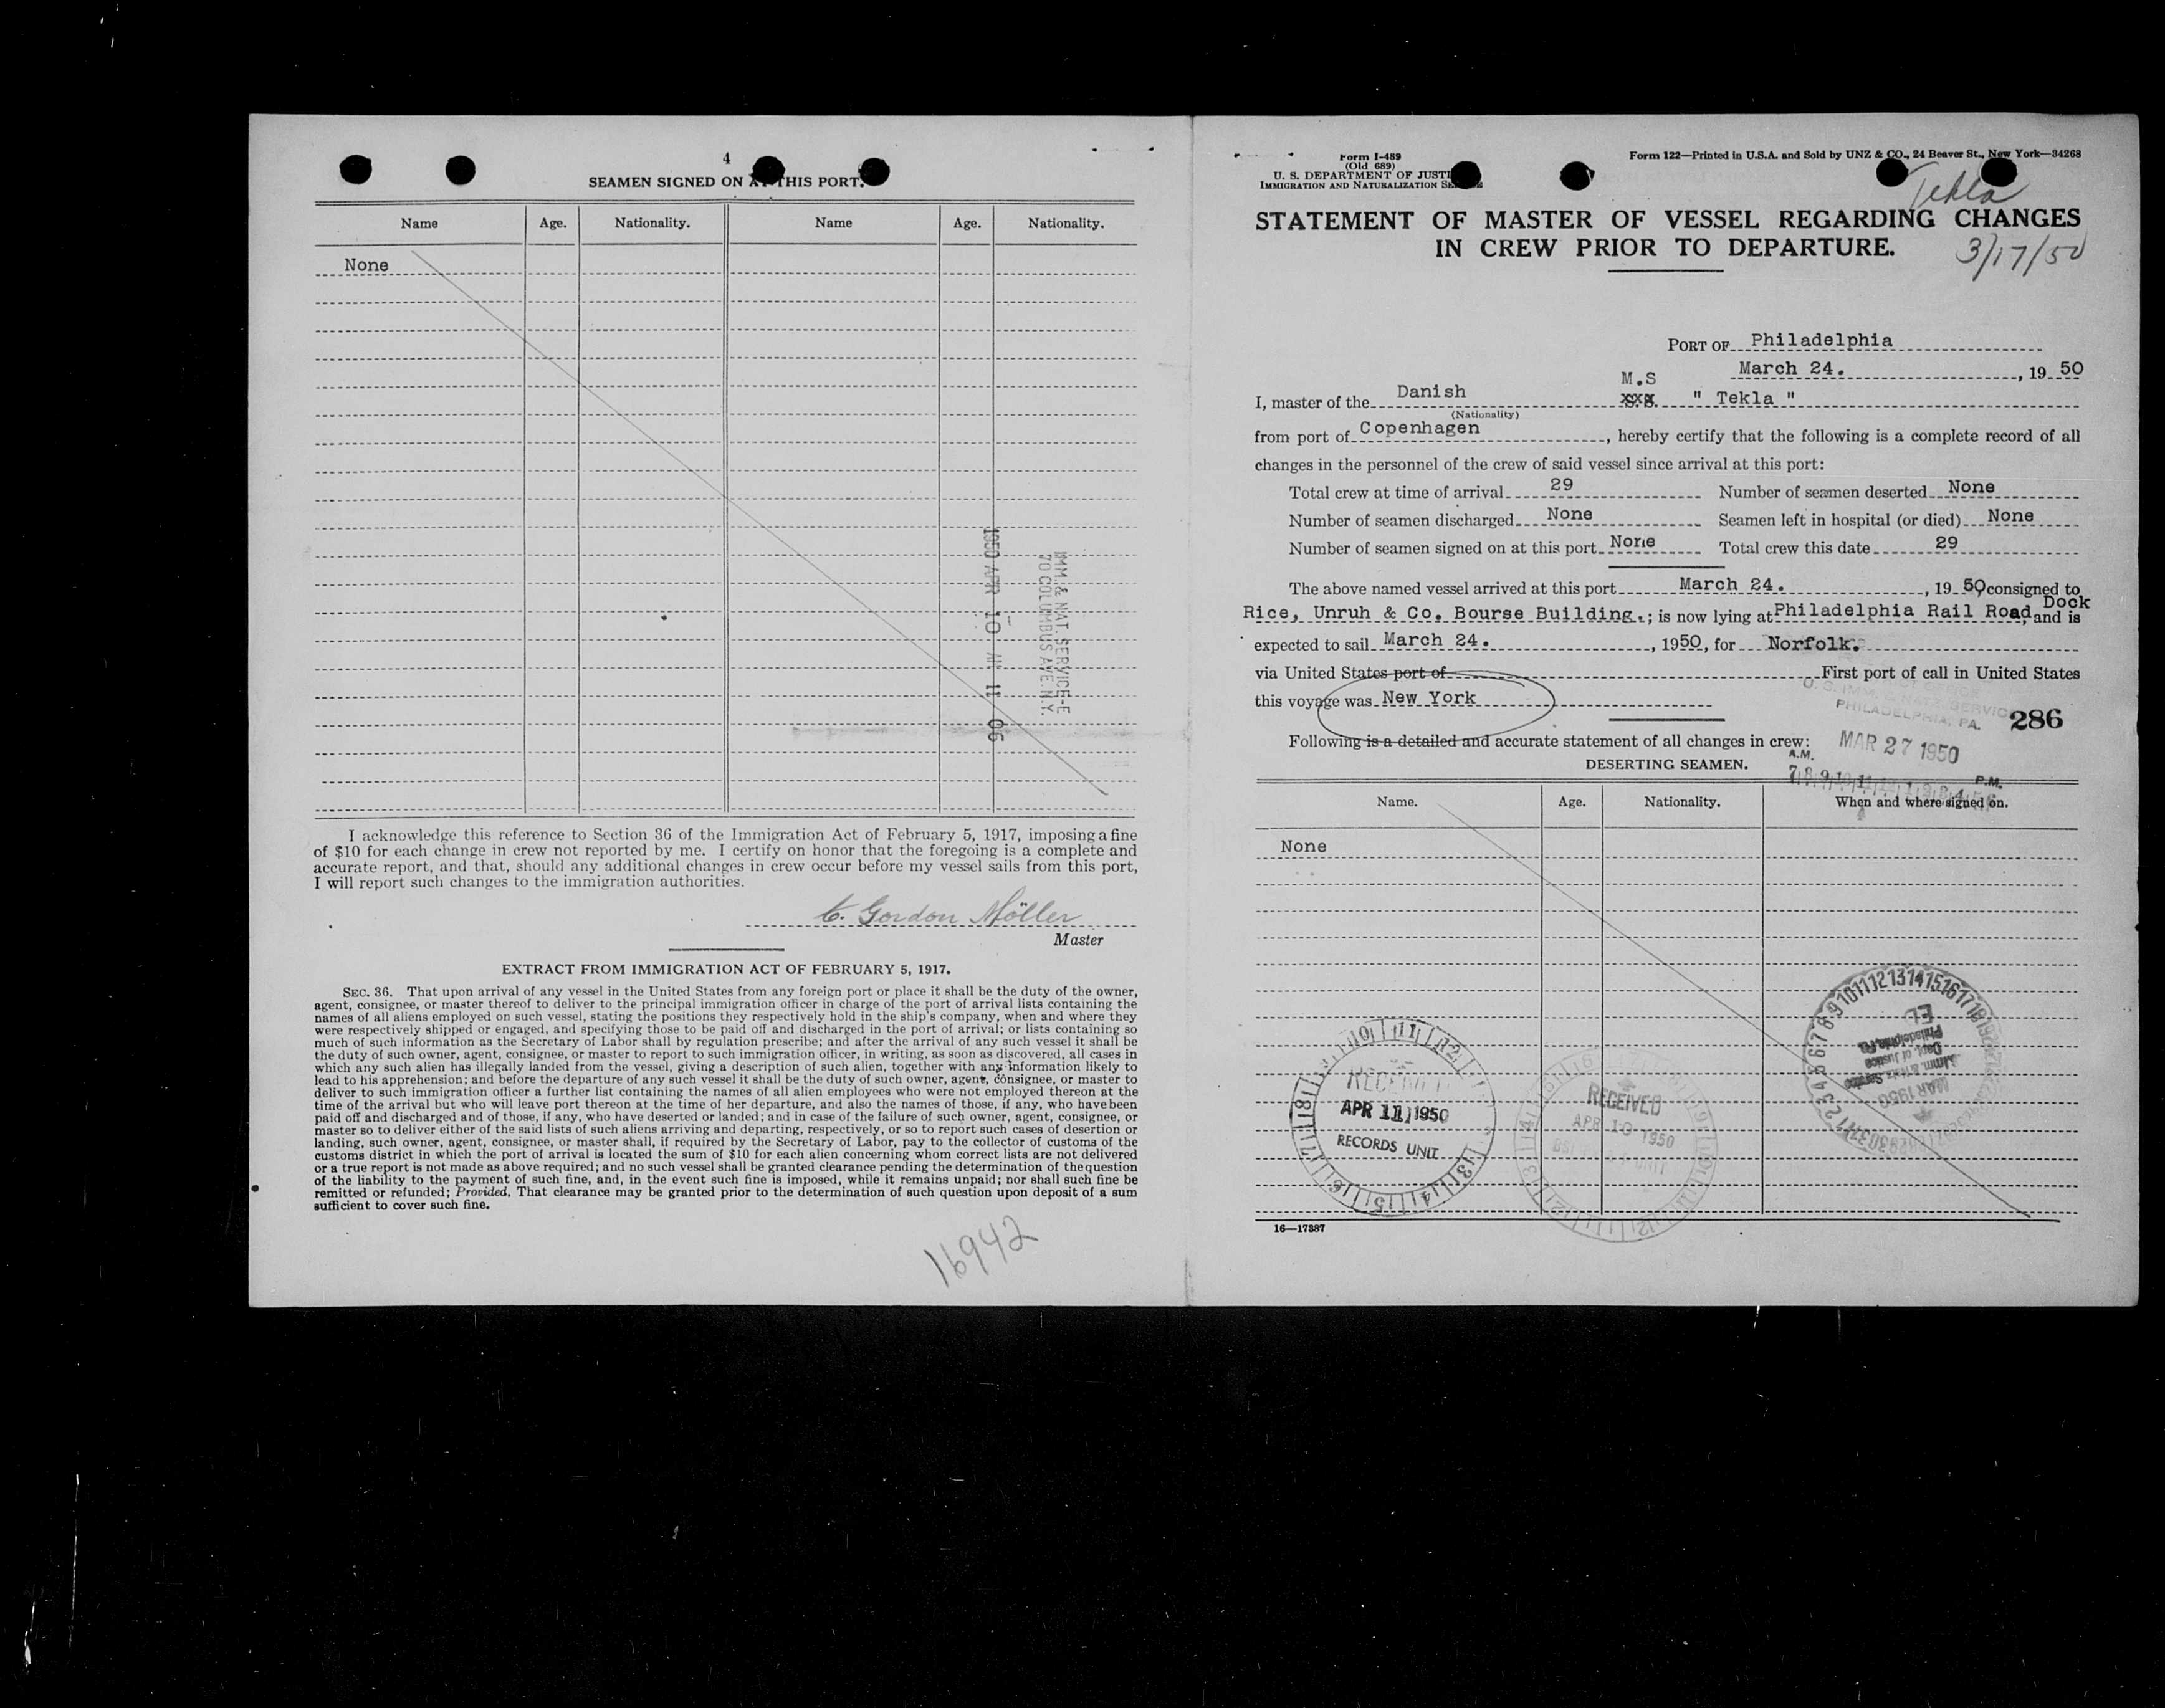 4
SEAMEN SIGNED ON AT THIS PORT.
Name Age. Nationality. Name Age. Nationality.
None
1950 APR 10 AM 11 06
IMM. & NAT. SERVICE-E
70 COLUMBUS AVE. N.Y.
I acknowledge this reference to Section 36 of the Immigration Act of February 5, 1917, imposing a fine
of $10 for each change in crew not reported by me. I certify on honor that the foregoing is a complete and
accurate report, and that, should any additional changes in crew occur before my vessel sails from this port,
I will report such changes to the immigration authorities.
C. Gordon Möller
Master
EXTRACT FROM IMMIGRATION ACT OF FEBRUARY 5, 1917.
SEC. 36. That upon arrival of any vessel in the United States from any foreign port or place it shall be the duty of the owner,
agent, consignee, or master thereof to deliver to the principal immigration officer in charge of the port of arrival lists containing the
names of all aliens employed on such vessel, stating the positions they respectively hold in the ship's company, when and where they
were respectively shipped or engaged, and specifying those to be paid off and discharged in the port of arrival; or lists containing so
much of such information as the Secretary of Labor shall by regulation prescribe; and after the arrival of any such vessel it shall be
the duty of such owner, agent, consignee, or master to report to such immigration officer, in writing, as soon as discovered, all cases in
which any such alien has illegally landed from the vessel, giving a description of such alien, together with any information likely to
lead to his apprehension; and before the departure of any such vessel it shall be the duty of such owner, agent, consignee, or master to
deliver to such immigration officer a further list containing the names of all alien employees who were not employed thereon at the
time of the arrival but who will leave port thereon at the time of her departure, and also the names of those, if any, who have been
paid off and discharged and of those, if any, who have deserted or landed; and in case of the failure of such owner, agent, consignee, or
master so to deliver either of the said lists of such aliens arriving and departing, respectively, or so to report such cases of desertion or
landing, such owner, agent, consignee, or master shall, if required by the Secretary of Labor, pay to the collector of customs of the
customs district in which the port of arrival is located the sum of $10 for each alien concerning whom correct lists are not delivered
or a true report is not made as above required; and no such vessel shall be granted clearance pending the determination of the question
of the liability to the payment of such fine, and, in the event such fine is imposed, while it remains unpaid; nor shall such fine be
remitted or refunded; Provided, That clearance may be granted prior to the determination of such question upon deposit of a sum
sufficient to cover such fine.
16942
Form I-489
(Old 689)
U. S. DEPARTMENT OF JUSTI
IMMIGRATION AND NATURALIZATION SE
Form 122—Printed in U.S.A. and Sold by UNZ & CO., 24 Beaver St., New York—34268
Tekla
STATEMENT OF MASTER OF VESSEL REGARDING CHANGES
IN CREW PRIOR TO DEPARTURE.
3/17/50
PORT OF Philadelphia
March 24. , 19 50
M.S
I, master of the Danish xxx " Tekla "
(Nationality)
from port of Copenhagen , hereby certify that the following is a complete record of all
changes in the personnel of the crew of said vessel since arrival at this port:
Total crew at time of arrival 29 Number of seamen deserted None
Number of seamen discharged None Seamen left in hospital (or died) None
Number of seamen signed on at this port None Total crew this date 29
The above named vessel arrived at this port March 24. , 19 50 consigned to
Rice, Unruh & Co. Bourse Building. ; is now lying at Philadelphia Rail Road Dock , and is
expected to sail March 24. , 1950, for Norfolk.
via United States port of First port of call in United States
this voyage was New York
U. S. IMM. & NATZ. SERVICE
PHILADELPHIA, PA. 286
Following is a detailed and accurate statement of all changes in crew:
MAR 27 1950
A.M. P.M.
7 8 9 10 11 12 1 2 3 4 5 6
DESERTING SEAMEN.
Name. Age. Nationality. When and where signed on.
None
RECEIVED
APR 11 1950
RECORDS UNIT
RECEIVED
APR 10 1950
MAR 1950
Imm. & Natz. Service
Dept. of Justice
Philadelphia, Pa.
16—17387